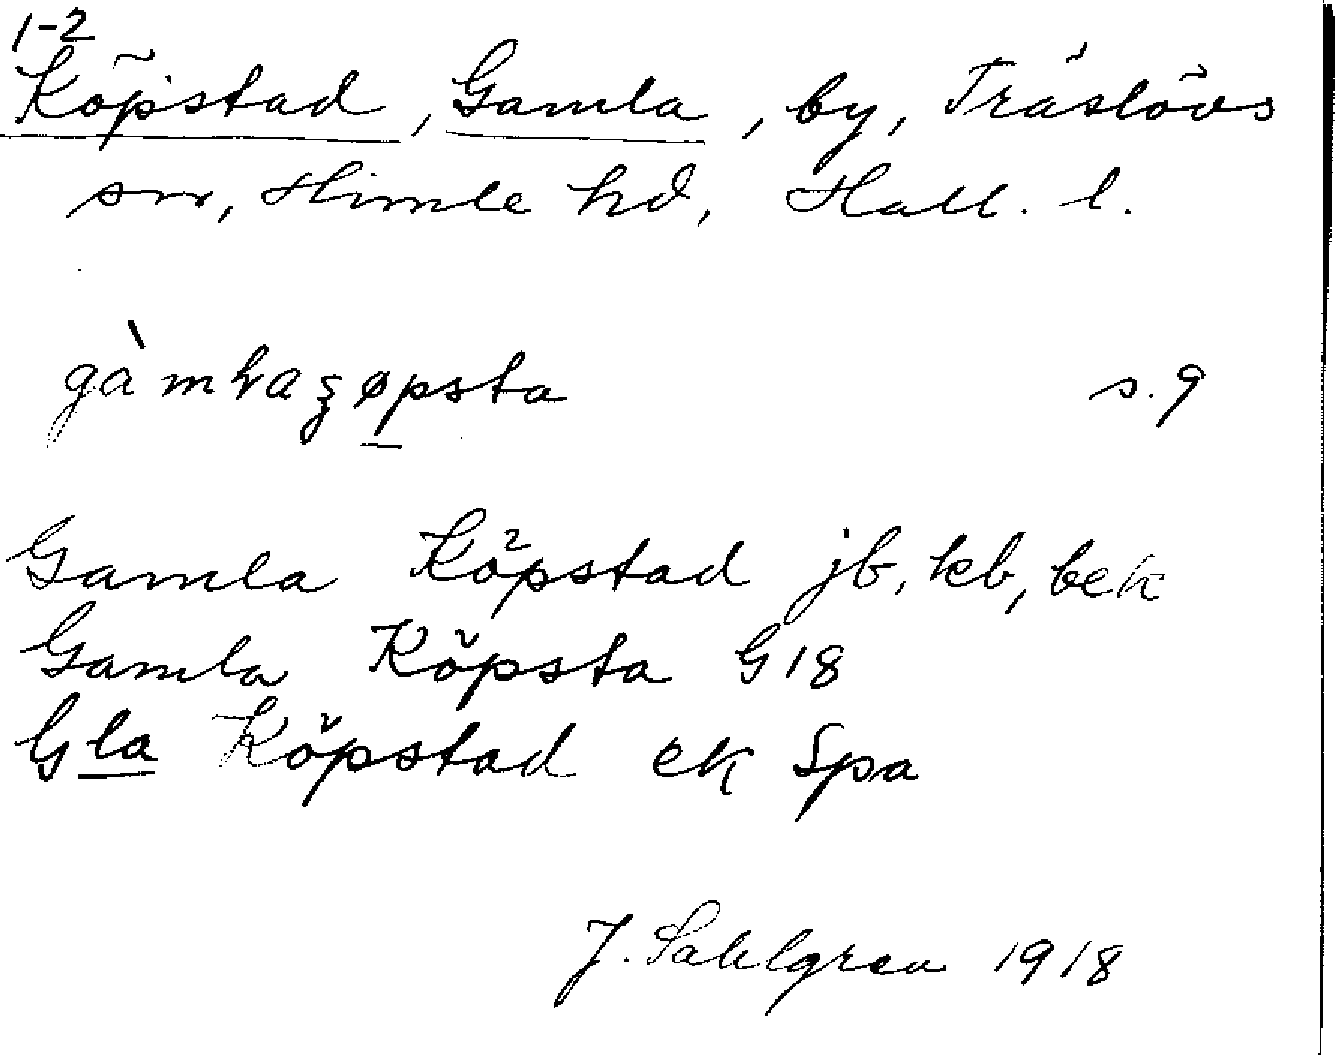 1-2
Köpstad, Gamla, by, Träslövs
sn, Himle hd, Hall. l.
s. 9
Gamla Köpstad jb, kb, bek
Gamla Köpsta G 18
Gla Köpstad ek Spa
J. Sahlgren 1918